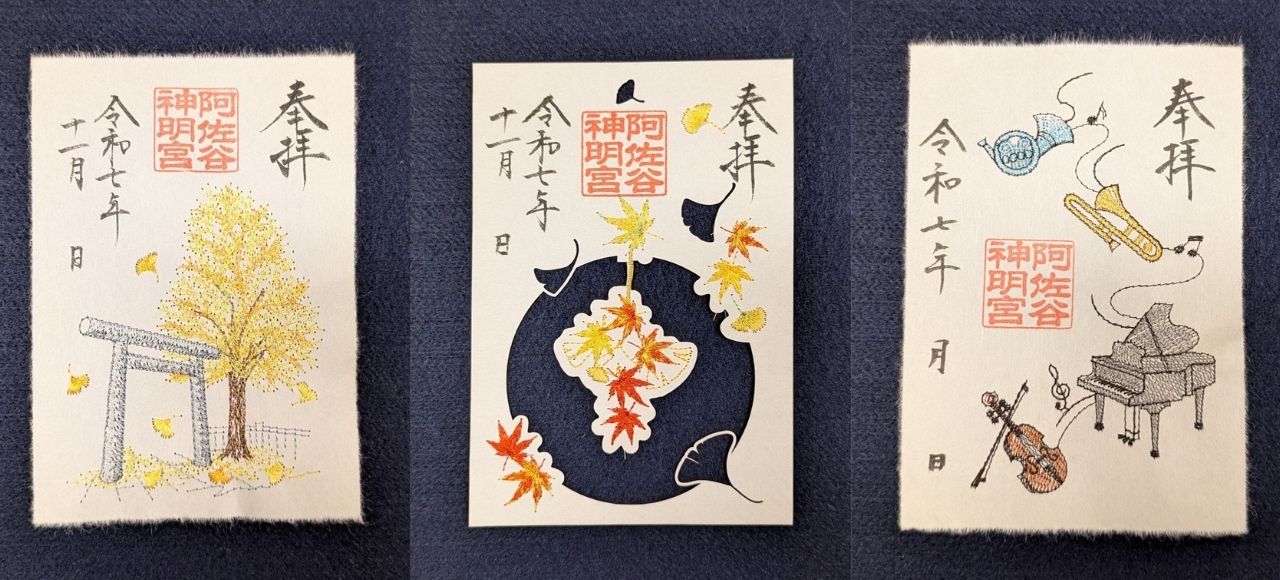 奉拝
阿佐谷
神明宮
令和七年
十一月 日
奉拝
阿佐谷
神明宮
令和七年
十一月 日
奉拝
阿佐谷
神明宮
令和七年 月 日